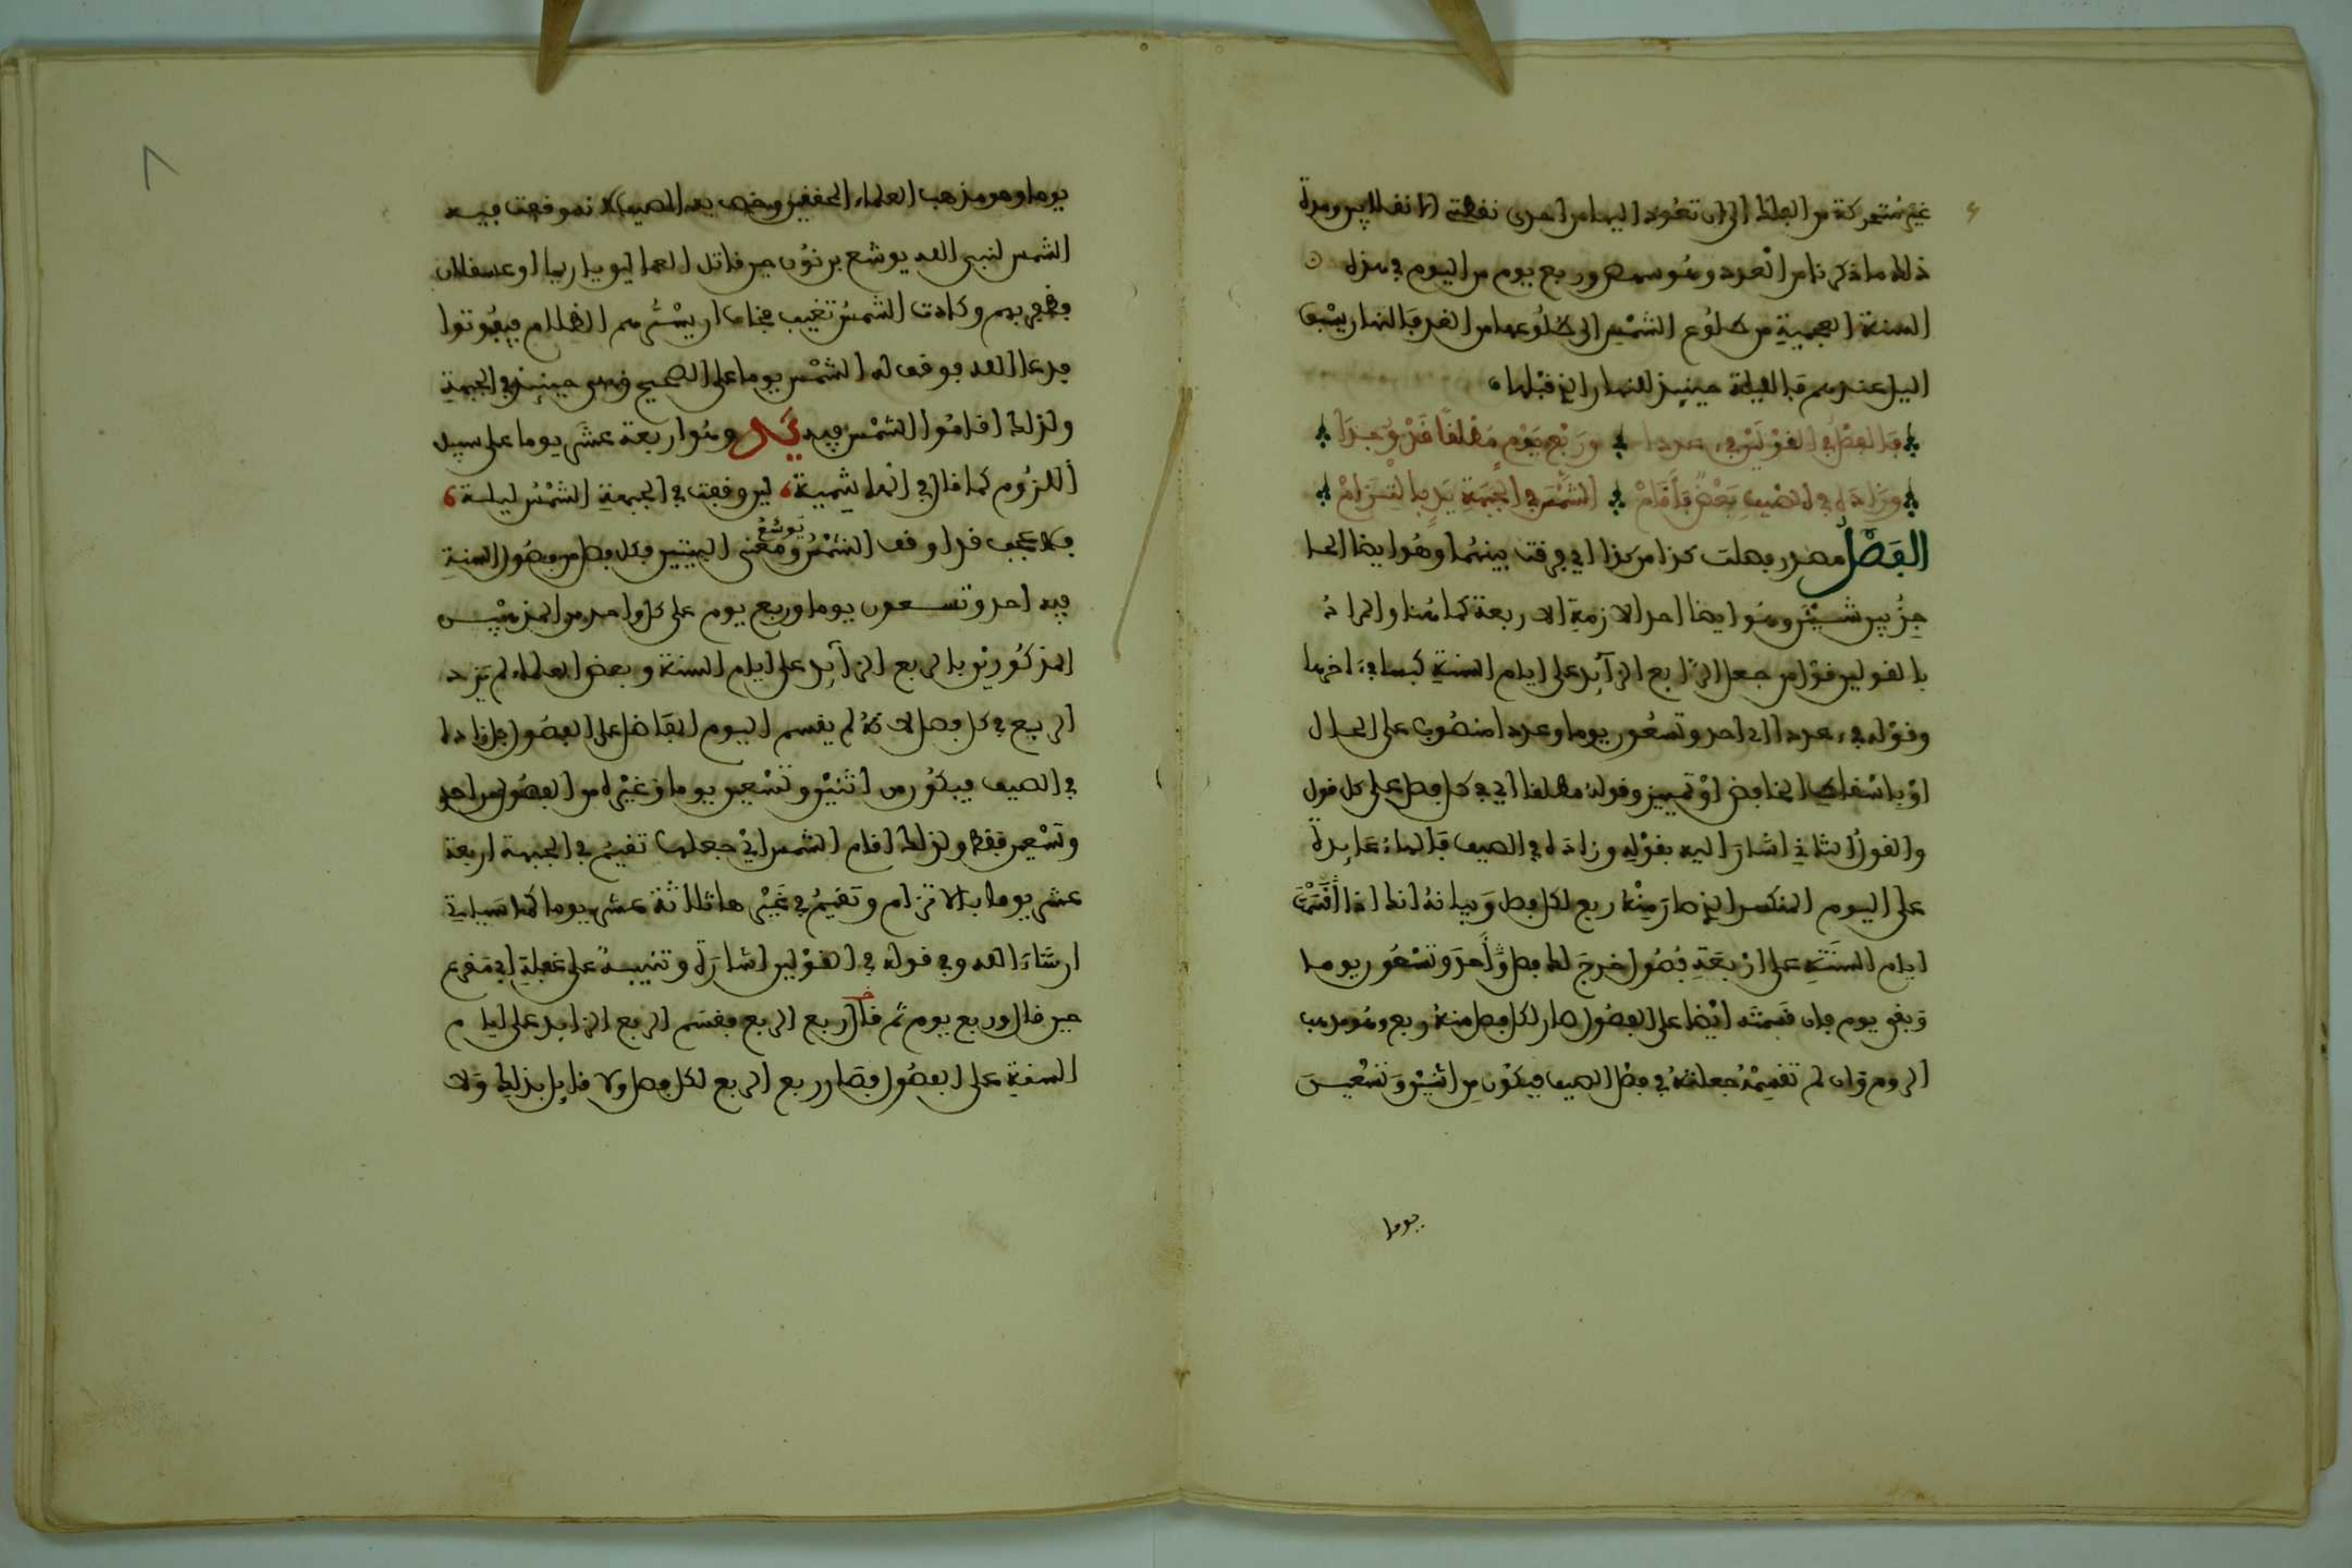 غير متحركة من الفلك الى ان تعود اليها من احدى نقطتي الانقلابين ومدة
ذلك ما ذكرنا من العدد وهو شسه وربع يوم من اليوم في هذه
السنة العجمية من طلوع الشمس الى طلوعها من الغد فالنهار يسبق
اليل عندهم فالليلة حينيذ للنهار الذي قبلها
فالفصل في القولين في عددا وربع يوم مطلقا قد وجدا
وزاده في الصيف بعض فاقام الشمس في الجبهة يد بالتزام
الفصل مصدر فصلت كذا من كذا اي فرقت بينهما وهو ايضا الحا
جز بين شيئين وهو ايضا احد الازمة الاربعة كما هنا والمراد
بالقولين قول من جعل الربع الزآئد على ايام السنة كبسا في اخرها
وقوله في عددا اي احد وتسعون يوما وعددا منصوب على الحال
او باسقاط الخافض او تمييز وقوله مطلقا اي في كل فصل على كل قول
والقول الثاني اشار اليه بقوله وزاده في الصيف فالهاء عايدة
على اليوم المنكسر الذي صار منه ربع لكل فصل وبيانه انك اذا قسمت
ايام السنة على اربعة فصول خرج لك فصل واحد وتسعون يوما
وبقي يوم فان قسمته ايضا على الفصول صار لكل فصل منه ربع وهو مذهب
الروم وان لم تقسمه جعلته في فصل الصيف فيكون من اثنين وتسعين
يوما
يوما وهو مذهب العلماء المحققين وخص به الصيف لانه وقفت فيه
الشمس لنبي الله يوشع بن نون حين قاتل العماليق باريحا او عسقلان
فظفر بهم وكادت الشمس تغيب فخاف ان يسترهم الظلام فيفوتوا
فدعا الله فوقف له الشمس يوما على الصحيح وهي حينيذ في الجبهة
ولذلك اقاموا الشمس فيه يد وهو اربعة عشر يوما على سبيل
اللزوم كما قال في الهاشمية لين وقفت في الجبهة الشمس ليلة
فلا عجب قد اوقف الشمس يوشع ومعنى البيتين فكل فصل من فصول السنة
فيه احد وتسعون يوما وربع يوم على كل واحد من المذهبين
المذكورين بالربع الزآئد على ايام السنة وبعض العلماء لم يزد
الربع في كل فصل لانه لم يقسم اليوم الفاضل على الفصول بل زاده
في الصيف فيكون من اثنين وتسعين يوما وغيره من الفصول من احد
وتسعين فقط ولذلك اقام الشمس اي جعلها تقيم في الجبهة اربعة
عشر يوما بالالتزام وتقيم في غيرها ثلاثة عشر يوما كما سياتي
ان شاء الله وفي قوله في القولين اشارة وتنبيه على غفلة ابي مقرع
حين قال وربع يوم ثم قال ربع الربع فقسم الربع الزايد على ايام
السنة على الفصول فصار ربع الربع لكل فصل ولا قايل بذلك ولا